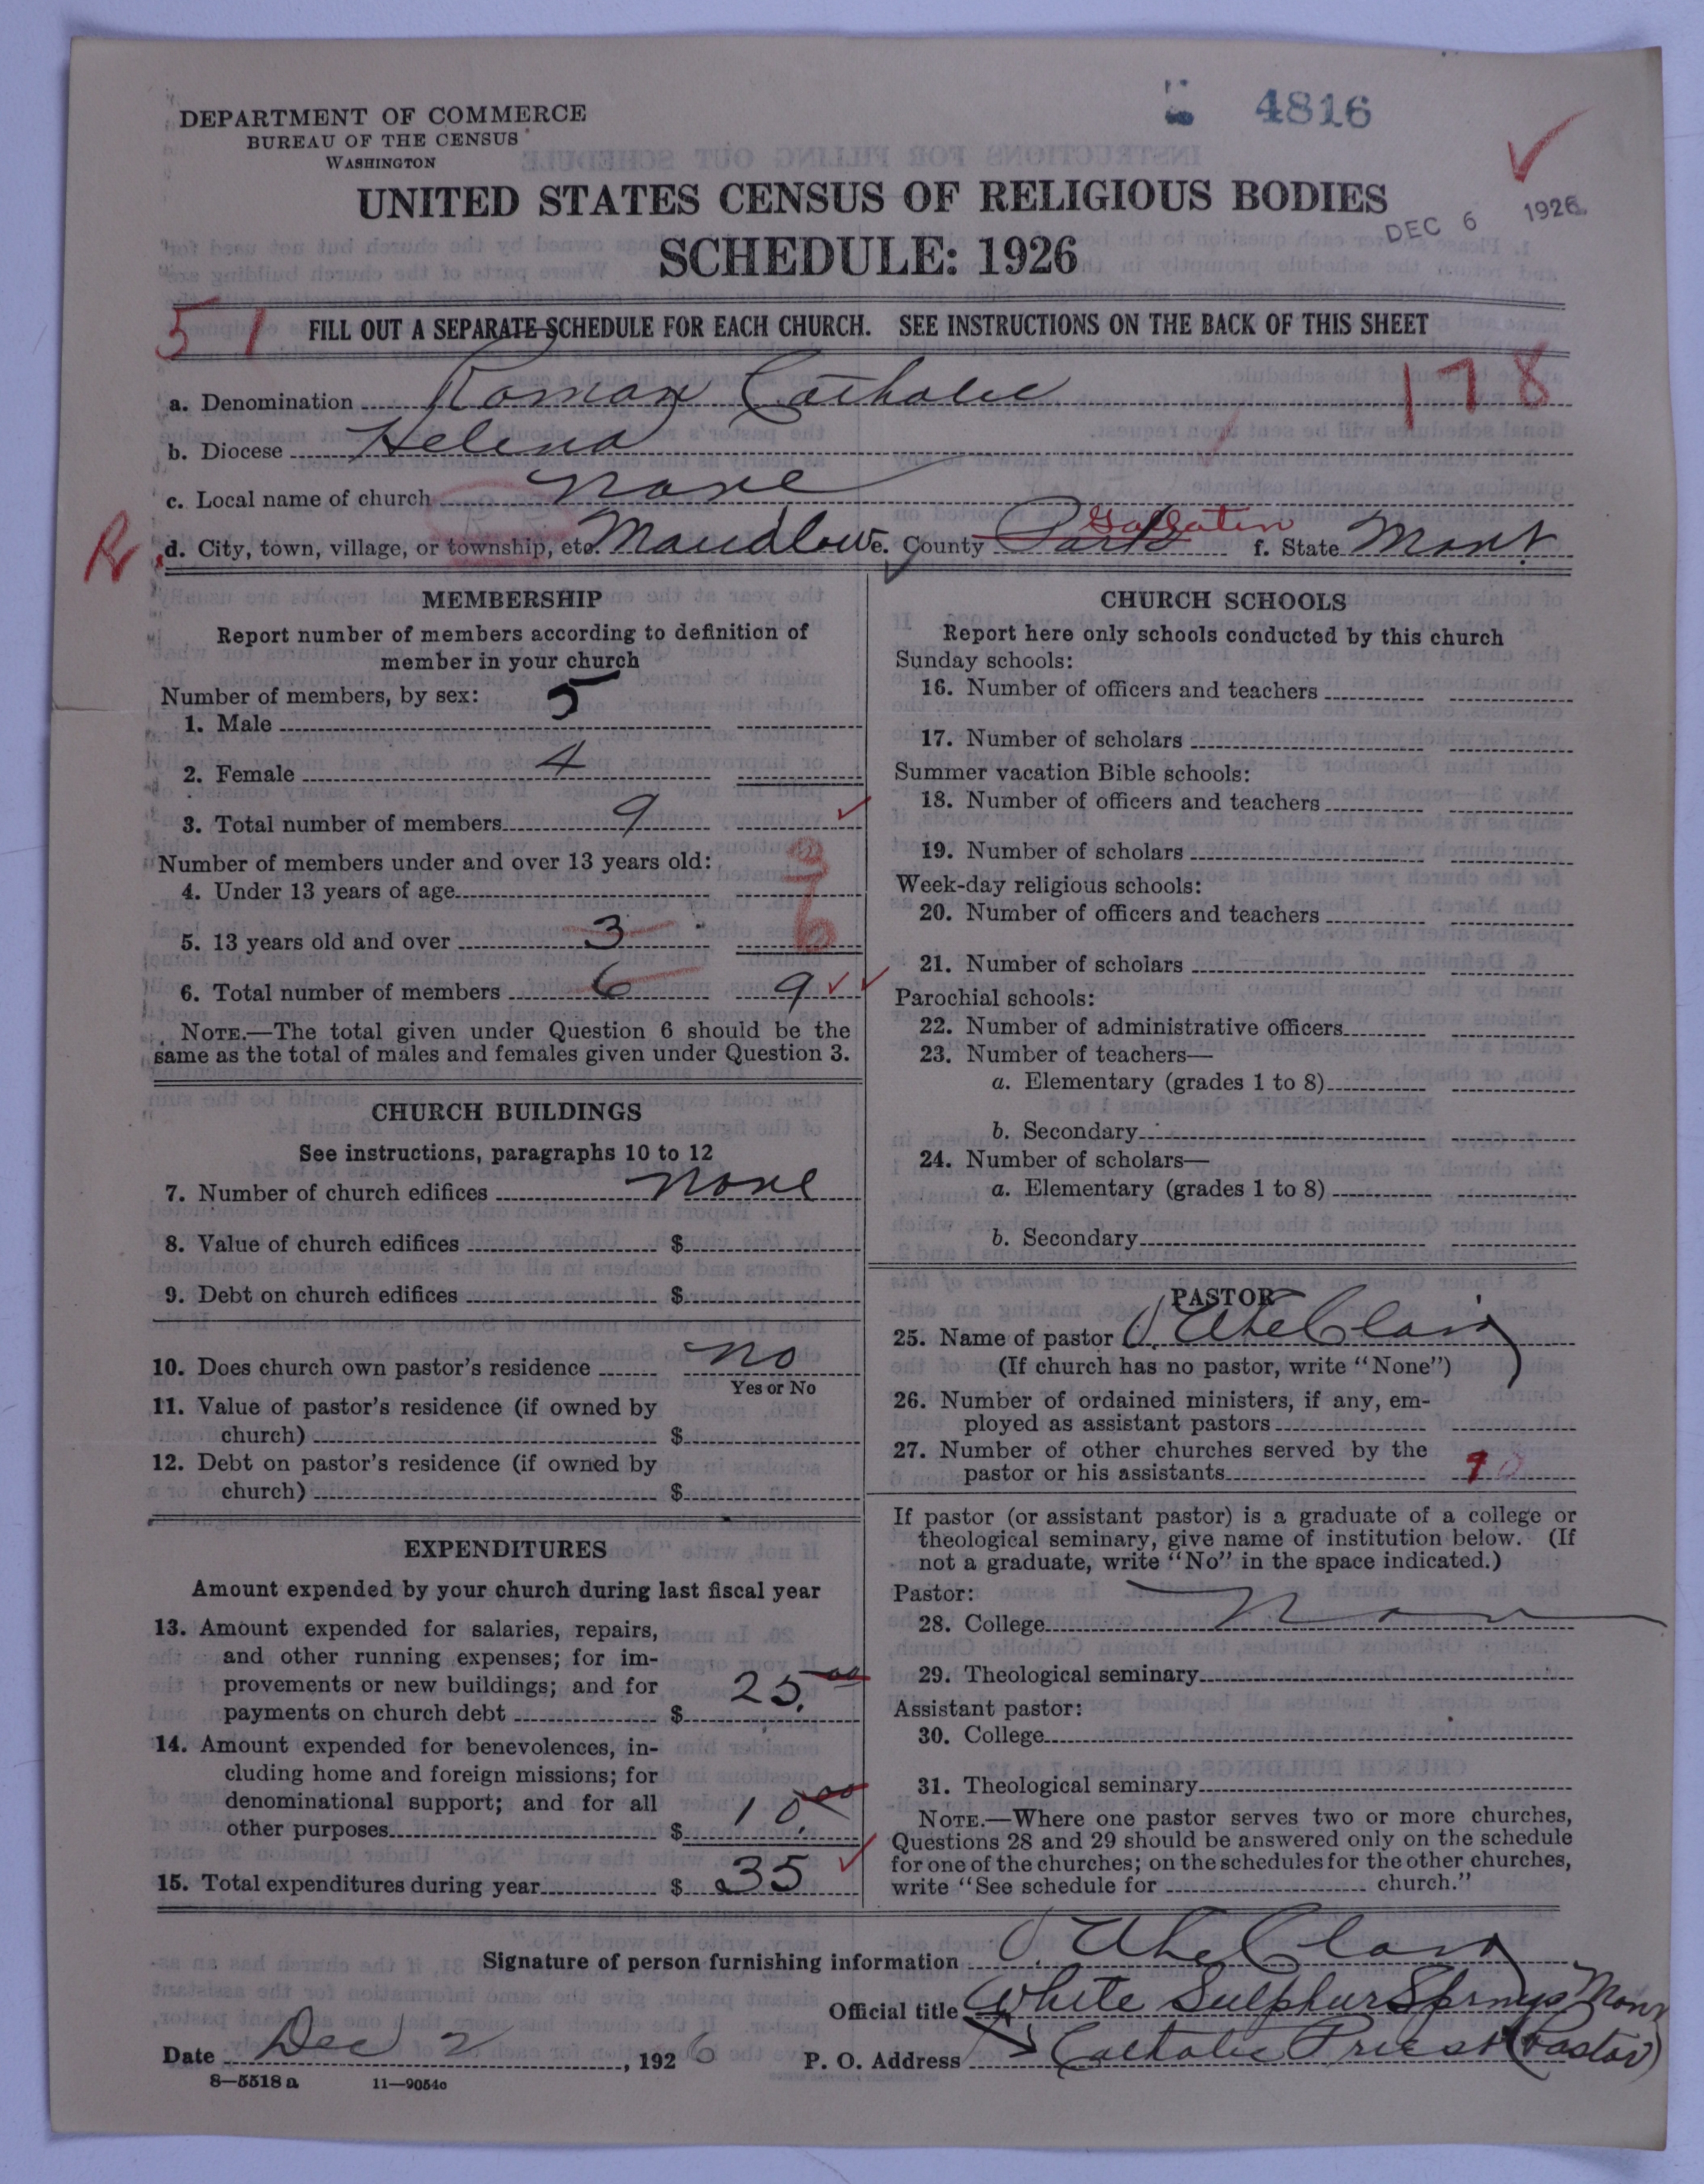 4816
DEPARTMENT OF COMMERCE
BUREAU OF THE CENSUS
WASHINGTON
UNITED STATES CENSUS OF RELIGIOUS BODIES
SCHEDULE: 1926
DEC 6 1926
51
FILL OUT A SEPARATE SCHEDULE FOR EACH CHURCH. SEE INSTRUCTIONS ON THE BACK OF THIS SHEET
178
a. Denomination Roman Catholic
b. Diocese Helena
c. Local name of church none
R
d. City, town, village, or township, etc. Maudlow e. County Park Gallatin f. State Mont
MEMBERSHIP
Report number of members according to definition of
member in your church
Number of members, by sex:
1. Male 5
2. Female 4
3. Total number of members 9
Number of members under and over 13 years old:
4. Under 13 years of age 3
5. 13 years old and over 3 6
6. Total number of members 6 9
NOTE.—The total given under Question 6 should be the
same as the total of males and females given under Question 3.
CHURCH BUILDINGS
See instructions, paragraphs 10 to 12
7. Number of church edifices none
8. Value of church edifices $
9. Debt on church edifices $
10. Does church own pastor's residence no
Yes or No
11. Value of pastor's residence (if owned by
church) $
12. Debt on pastor's residence (if owned by
church) $
EXPENDITURES
Amount expended by your church during last fiscal year
13. Amount expended for salaries, repairs,
and other running expenses; for im-
provements or new buildings; and for
payments on church debt $ 25.00
14. Amount expended for benevolences, in-
cluding home and foreign missions; for
denominational support; and for all
other purposes $ 10.00
15. Total expenditures during year $ 35
CHURCH SCHOOLS
Report here only schools conducted by this church
Sunday schools:
16. Number of officers and teachers
17. Number of scholars
Summer vacation Bible schools:
18. Number of officers and teachers
19. Number of scholars
Week-day religious schools:
20. Number of officers and teachers
21. Number of scholars
Parochial schools:
22. Number of administrative officers
23. Number of teachers—
a. Elementary (grades 1 to 8)
b. Secondary
24. Number of scholars—
a. Elementary (grades 1 to 8)
b. Secondary
PASTOR
25. Name of pastor
(If church has no pastor, write "None")
26. Number of ordained ministers, if any, em-
ployed as assistant pastors
27. Number of other churches served by the
pastor or his assistants
If pastor (or assistant pastor) is a graduate of a college or
theological seminary, give name of institution below. (If
not a graduate, write "No" in the space indicated.)
Pastor:
28. College
29. Theological seminary
Assistant pastor:
30. College
31. Theological seminary
NOTE.—Where one pastor serves two or more churches,
Questions 28 and 29 should be answered only on the schedule
for one of the churches; on the schedules for the other churches,
write "See schedule for church."
Signature of person furnishing information
Official title White Sulphur Springs Mont
Date Dec 2, 1926 P. O. Address Catholic Priest (Pastor)
8—5518 a 11—9054c